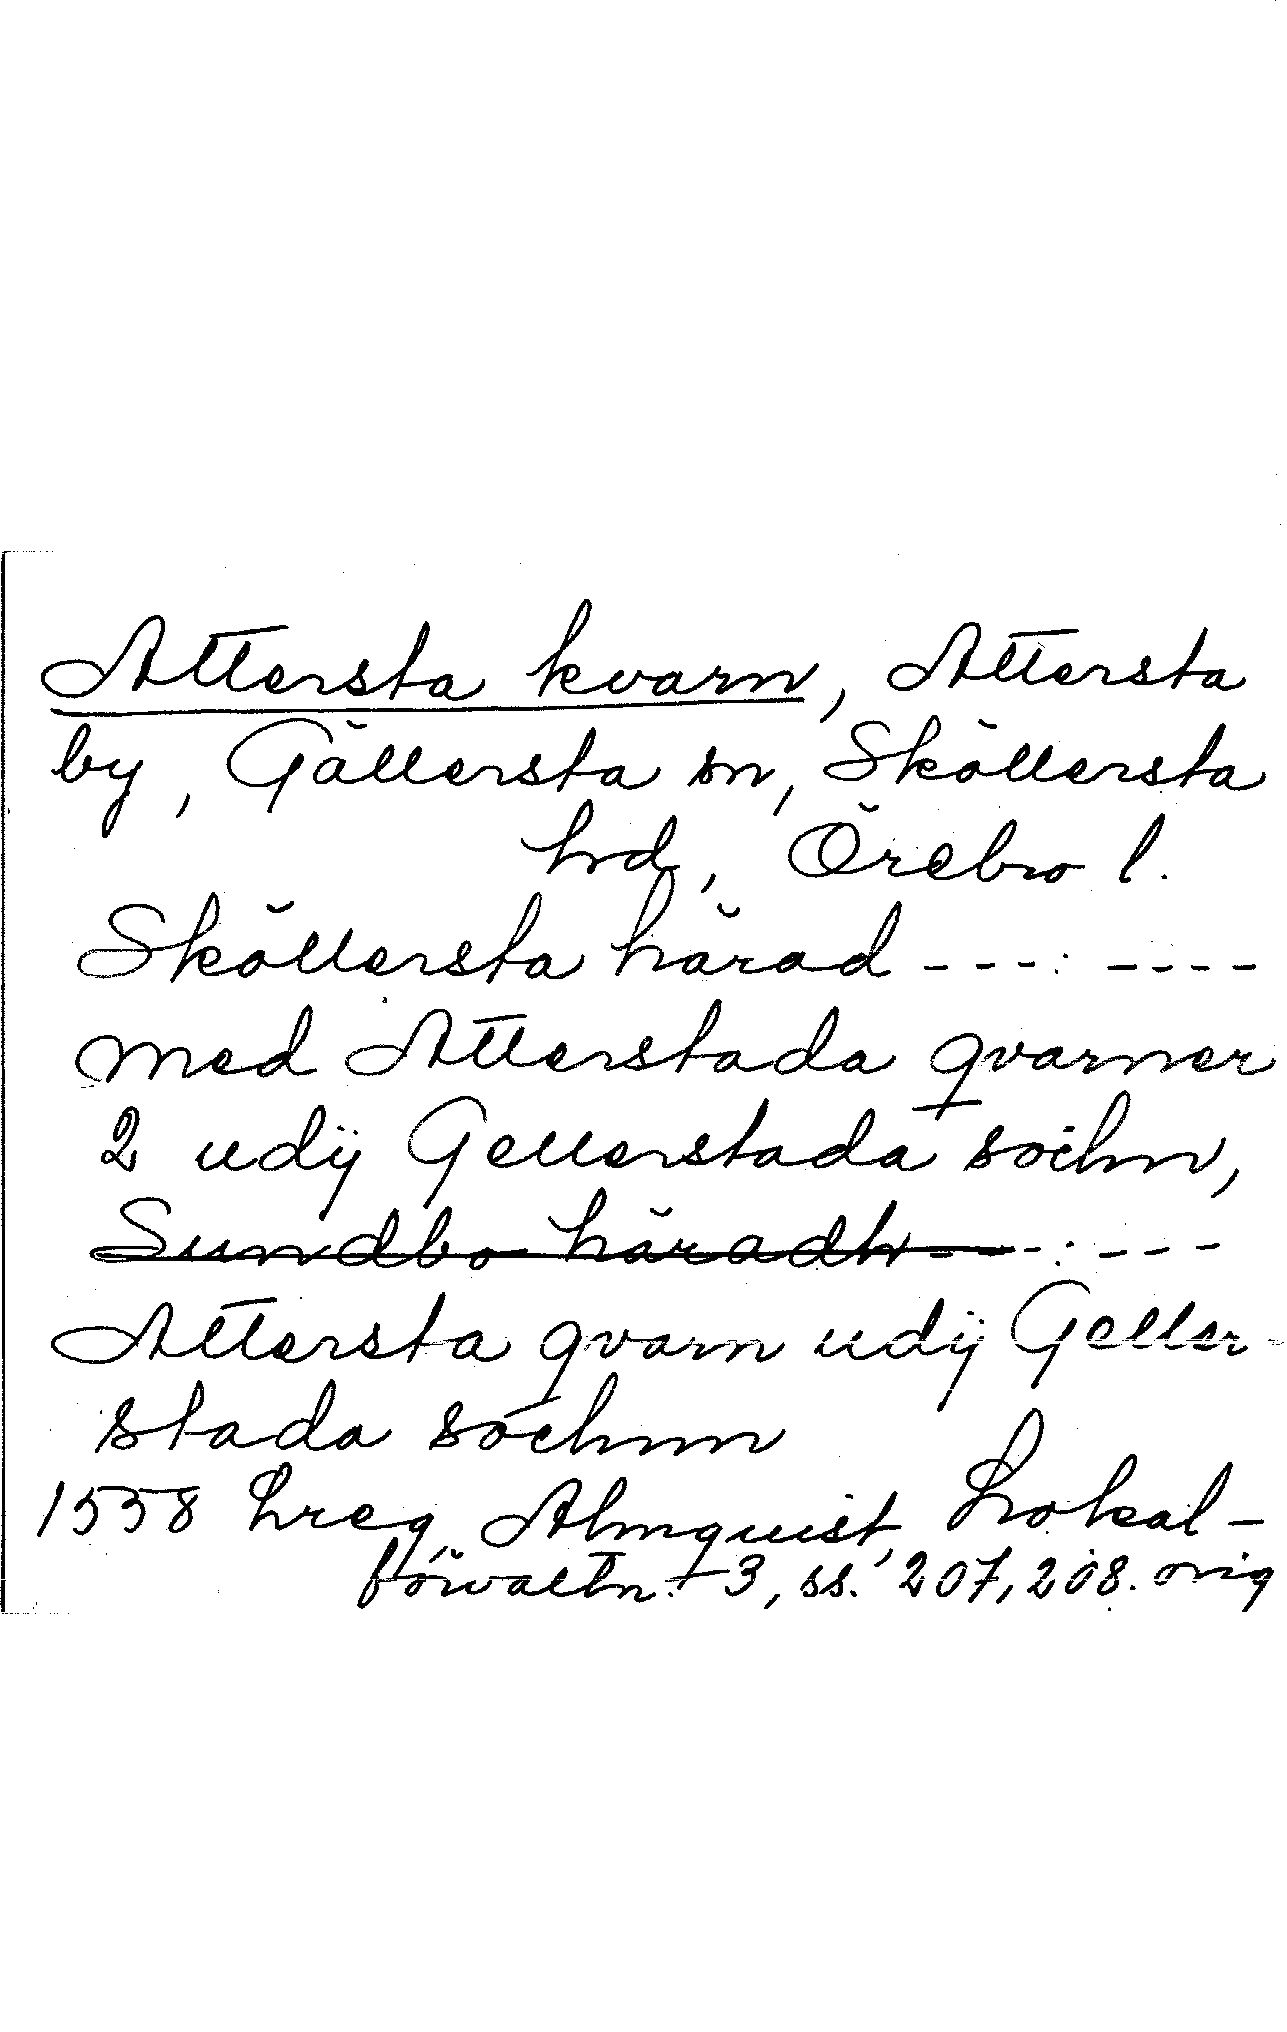 Attersta kvarn, Attersta
by, Gällersta sn, Sköllersta
hrd, Örebro l.
Sköllersta härad - - - : - - - -
med Atterstada qvarner
2 udij Gellerstada sochn,
Sundbo häradh - - - - : - - -
Attersta qvarn udij Geller-
stada sochnn
1558 Lreg, Almquist, Lokal-
förvaltn. 3, ss. 207, 208. orig